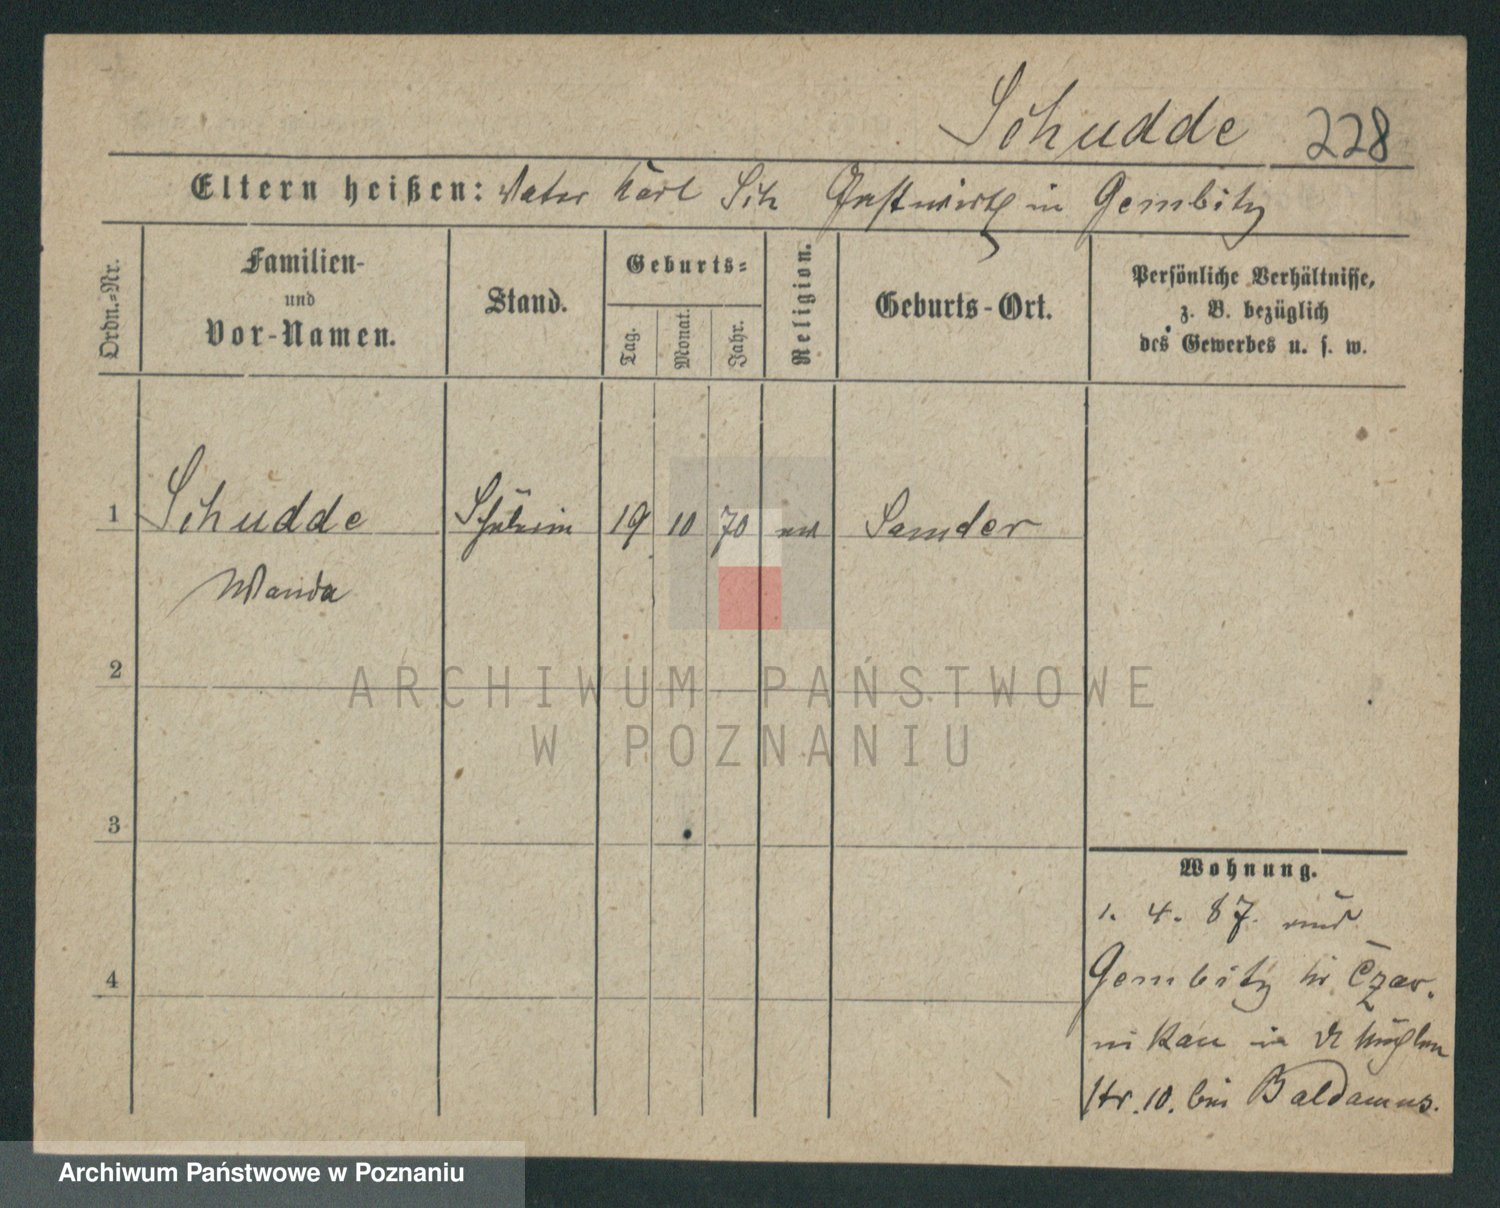 Schudde 228
Eltern heißen: Vater Karl Sch Gastwirth in Gembitz
Ordn.=Nr.
Familien-
und
Vor-Namen.
Stand.
Geburts=
Tag.
Monat.
Jahr.
Religion.
Geburts-Ort.
Persönliche Verhältnisse,
z. B. bezüglich
des Gewerbes u. s. w.
1 Schudde 19 10 70
Wanda
2
3
4
Wohnung.
1. 4. 87.
Gembitz Kr Czar.
nikau in
Str. 10. bei Baldamus.
ARCHIWUM PAŃSTWOWE
W POZNANIU
Archiwum Państwowe w Poznaniu